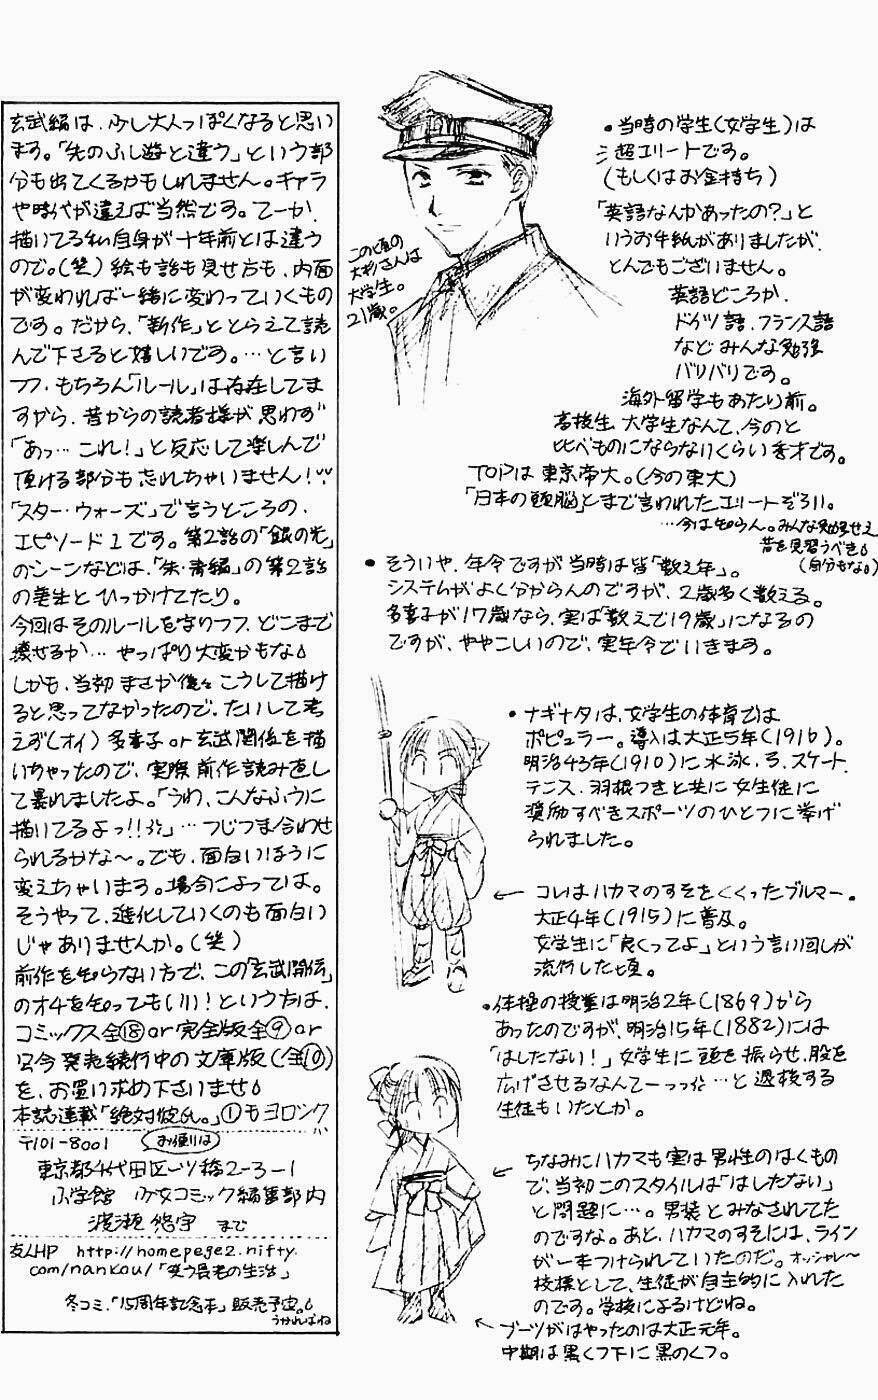 玄武編は、少し大人っぽくなると思い
ます。「先のふし遊と違う」という部
分も出てくるかもしれません。キャラ
や時代が違えば当然です。てーか、
描いてる私自身が十年前とは違う
ので。(笑)絵も話も見せ方も、内面
が変われば一緒に変わっていくもの
です。だから、「新作」ととらえて読
んで下さると嬉しいです。…と言い
つつ、もちろん「ルール」は存在してま
すから、昔からの読者様が思わず
「あっ…これ!」と反応して楽しんで
頂ける部分も忘れちゃいません!
「スター・ウォーズ」で言うところの、
エピソード1です。第2話の「銀の光」
のシーンなどは、「朱・青編」の第2話
の美朱とひっかけてたり。
今回はそのルールを守りつつ、どこまで
壊せるか…やっぱり大変かもな
しかも、当初まさか後々こうして描け
ると思ってなかったので、たいして考
えず(オイ)多喜子or玄武関係を描
いちゃったので、実際前作読み直し
て暴れましたよ。「うわ、こんなふうに
描いてるよっ!!」…つじつま合わせ
られるかな〜。でも、面白いほうに
変えちゃいます。場合によっては。
そうやって、進化していくのも面白い
じゃありませんか。(笑)
前作を知らない方で、この「玄武開伝」
のオチを知っても(いい!という方は、
コミックス全⑱or完全版全⑨or
只今発売続行中の文庫版(全⑩)
を、お買い求め下さいませ
本誌連載「絶対彼氏。」①もヨロシク
〒101-8001 お便りは
東京都千代田区一ツ橋2-3-1
小学館 少女コミック編集部内
渡瀬悠宇 まで
友人HP http://homepege2.nifty.
com/nankou/「笑う長老の生活」
冬コミ、「15周年記念本」販売予定。
うかればね
この頃の
大杉さんは
大学生。
21歳。
・当時の学生(女学生)は
超エリートです。
(もしくはお金持ち)
「英語なんかあったの?」と
いうお手紙がありましたが、
とんでもございません。
英語どころか、
ドイツ語、フランス語
などみんな勉強
バリバリです。
海外留学もあたり前。
高校生、大学生なんて、今のと
比べものにならないくらい秀才です。
TOPは東京帝大。(今の東大)
「日本の頭脳」とまで言われたエリートぞろい。
…今は知らん。みんな勉強せえ
昔を見習うべき
(自分もな)
・そういや、年令ですが当時は皆「数え年」。
システムがよく分からんのですが、2歳多く数える。
多喜子が17歳なら、実は「数えで19歳」になるの
ですが、ややこしいので、実年令でいきます。
・ナギナタは、女学生の体育では
ポピュラー。導入は大正5年(1916)。
明治43年(1910)に水泳、弓、スケート、
テニス、羽根つきと共に女生徒に
奨励すべきスポーツのひとつに挙げ
られました。
← コレはハカマのすそをくくったブルマー。
大正4年(1915)に普及。
女学生に「良くってよ」という言い回しが
流行した頃。
・体操の授業は明治2年(1869)から
あったのですが、明治15年(1882)には
「はしたない!」女学生に頭を振らせ、股を
広げさせるなんてーっっ…と退校する
生徒もいたとか。
← ちなみにハカマも実は男性のはくもの
で、当初このスタイルは「はしたない」
と問題に…。男装とみなされてた
のですな。あと、ハカマのすそには、ライン
が一本つけられていたのだ。オッシャレ〜
校標として、生徒が自主的に入れた
のです。学校によるけどね。
← ブーツがはやったのは大正元年。
中期は黒くつ下に黒のくつ。